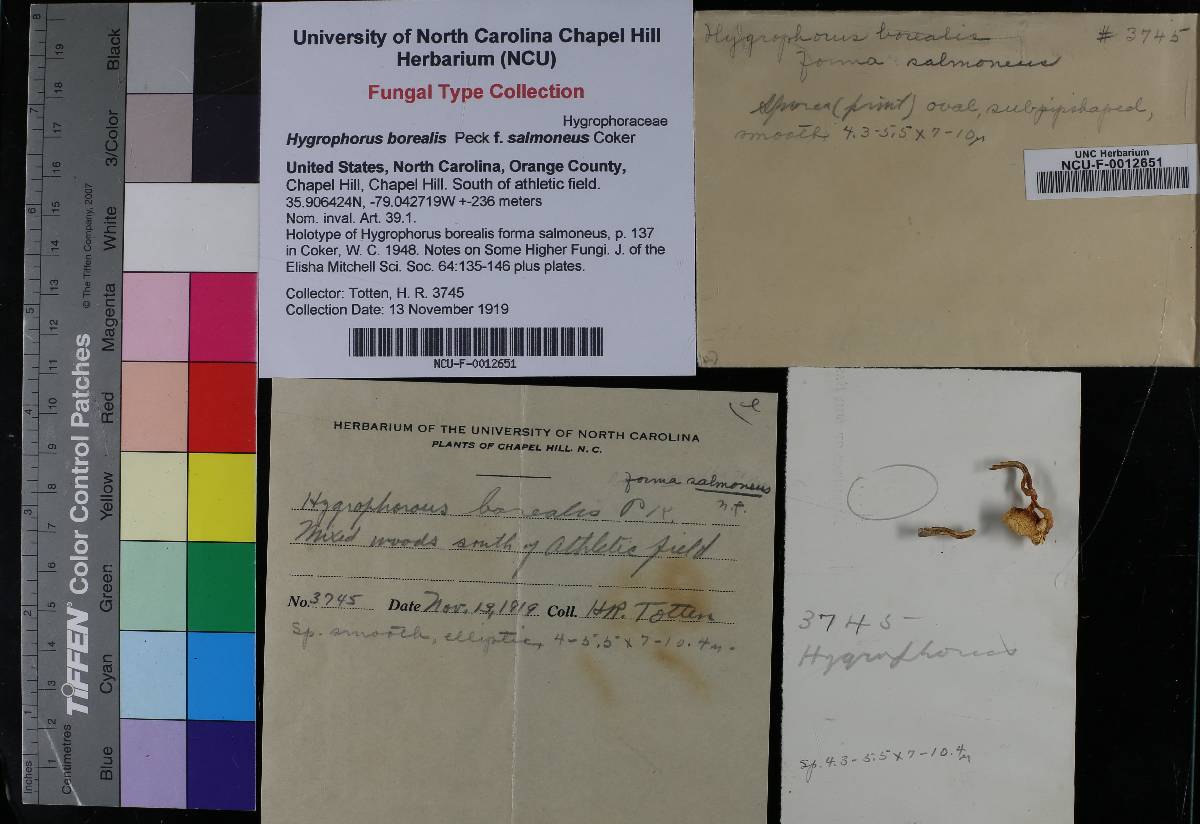 University of North Carolina Chapel Hill
Herbarium (NCU)
Fungal Type Collection
Hygrophoraceae
Hygrophorus borealis Peck f. salmoneus Coker
United States, North Carolina, Orange County,
Chapel Hill, Chapel Hill. South of athletic field.
35.906424N, -79.042719W +-236 meters
Nom. inval. Art. 39.1.
Holotype of Hygrophorus borealis forma salmoneus, p. 137
in Coker, W. C. 1948. Notes on Some Higher Fungi. J. of the
Elisha Mitchell Sci. Soc. 64:135-146 plus plates.
Collector: Totten, H. R. 3745
Collection Date: 13 November 1919
NCU-F-0012651
Hygrophorus borealis # 3745
forma salmoneus
Spores (print) oval, subpipshaped,
smooth, 4.3-5.5 x 7-10µ
UNC Herbarium
NCU-F-0012651
HERBARIUM OF THE UNIVERSITY OF NORTH CAROLINA
PLANTS OF CHAPEL HILL. N. C.
forma salmoneus
n.f.
Hygrophorous borealis Pk.
Mixed woods south of Athletic field
No. 3745 Date Nov. 13, 1919 Coll. H.R. Totten
Sp. smooth, elliptic, 4-5.5 x 7-10.4µ.
3745
Hygrophorus
Sp. 4.3-5.5 x 7-10.4µ
Inches
1 2 3 4 5 6 7 8
Centimetres
1 2 3 4 5 6 7 8 9 10 11 12 13 14 15 16 17 18 19
TIFFEN® Color Control Patches
© The Tiffen Company, 2007
Blue
Cyan
Green
Yellow
Red
Magenta
White
3/Color
Black